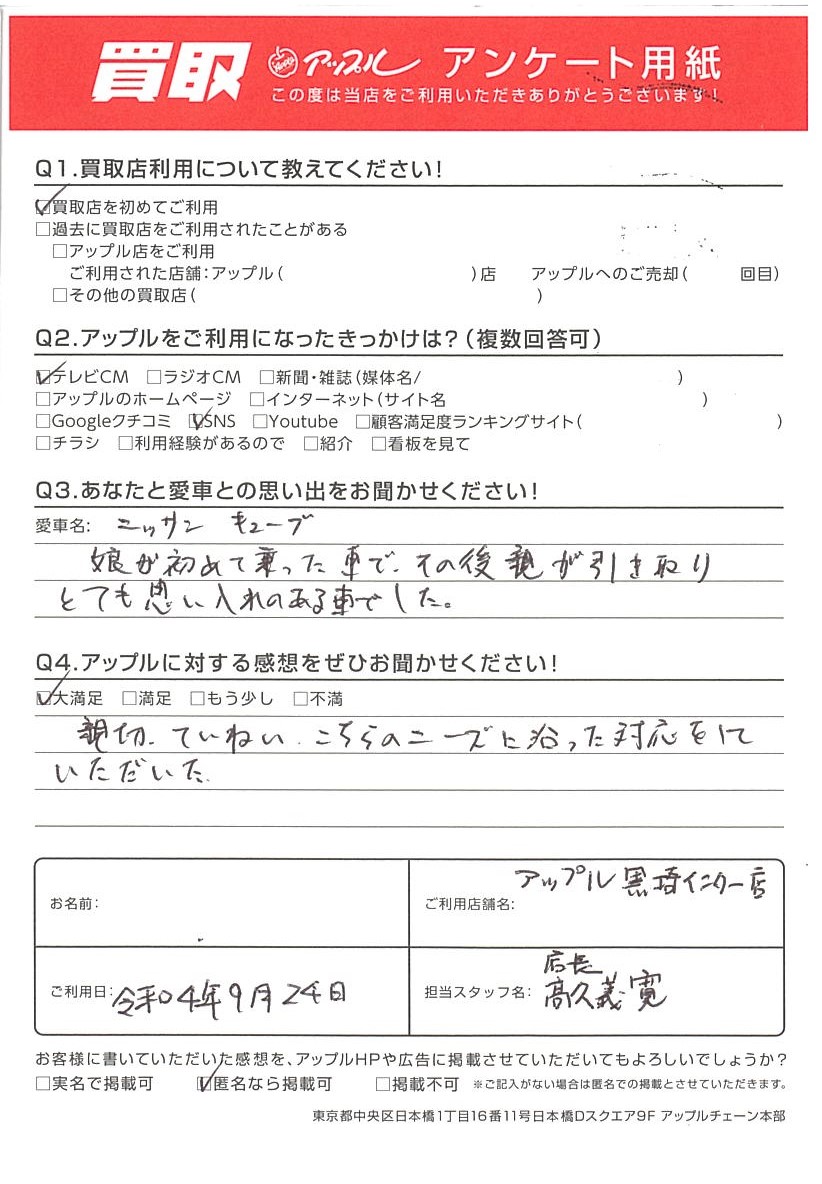 買取 アップル アンケート用紙
この度は当店をご利用いただきありがとうございます!
Q1.買取店利用について教えてください!
☑買取店を初めてご利用
□過去に買取店をご利用されたことがある
□アップル店をご利用
ご利用された店舗:アップル( )店 アップルへのご売却( 回目)
□その他の買取店( )
Q2.アップルをご利用になったきっかけは?(複数回答可)
☑テレビCM □ラジオCM □新聞・雑誌(媒体名/ )
□アップルのホームページ □インターネット(サイト名 )
□Googleクチコミ ☑SNS □Youtube □顧客満足度ランキングサイト( )
□チラシ □利用経験があるので □紹介 □看板を見て
Q3.あなたと愛車との思い出をお聞かせください!
愛車名: ニッサン キューブ
娘が初めて乗った車で、その後親が引き取り
とても思い入れのある車でした。
Q4.アップルに対する感想をぜひお聞かせください!
☑大満足 □満足 □もう少し □不満
親切、ていねい、こちらのニーズに沿った対応をして
いただいた。
お名前:
ご利用店舗名: アップル黒埼インター店
ご利用日: 令和04年9月24日
担当スタッフ名: 店長 高久義寛
お客様に書いていただいた感想を、アップルHPや広告に掲載させていただいてもよろしいでしょうか?
□実名で掲載可 ☑匿名なら掲載可 □掲載不可 ※ご記入がない場合は匿名での掲載とさせていただきます。
東京都中央区日本橋1丁目16番11号日本橋Dスクエア9F アップルチェーン本部